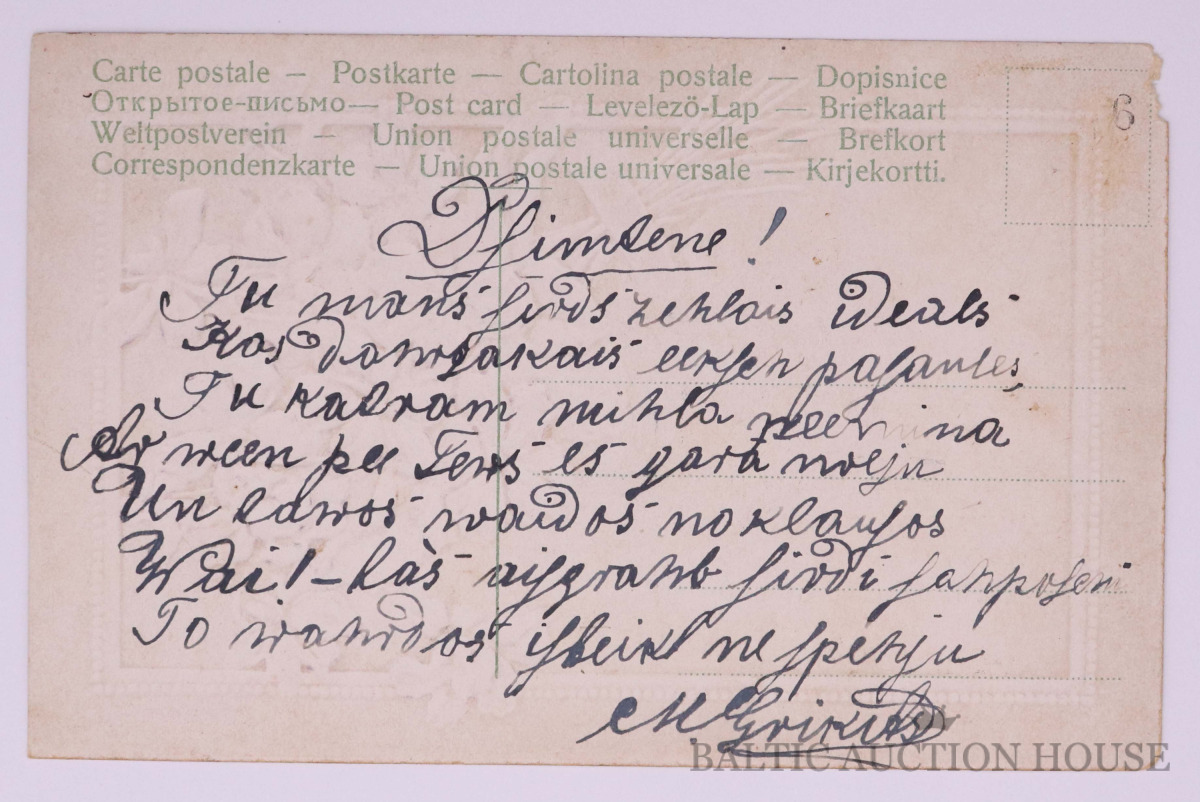 Carte postale – Postkarte — Cartolina postale — Dopisnice
Открытое-письмо — Post card — Levelezö-Lap — Briefkaart
Weltpostverein — Union postale universelle — Brefkort
Correspondenzkarte — Union postale universale — Kirjekortti.
6
Dsimtene!
Tu mans sirds zehlais ideals
Kas dahrgakais eeksch pasaules,
Tu katram mihla peemiņa
Ar ween pee Tews es garā
Un tawos waidos noklausos
Wai! – tàs aisgrahb sirdi sahposchi
To wahrdos isteikt nespehju
M. Grikits
BALTIC AUCTION HOUSE